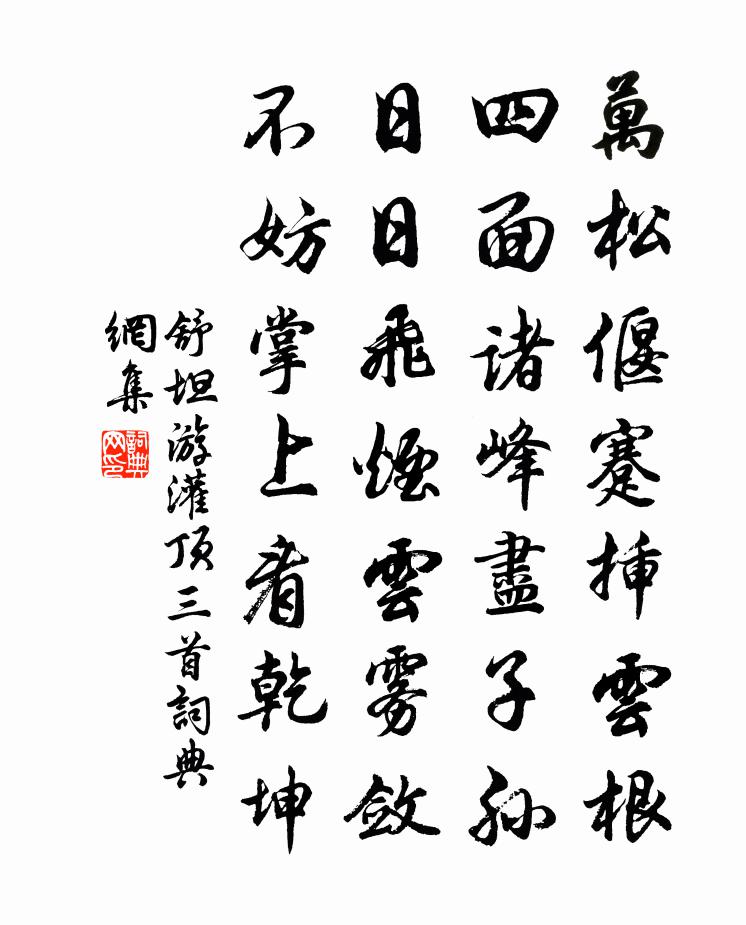 萬松偃蹇挿雲根
四面诸峰盡子孫
日日飛煙雲雾斂
不妨掌上看乾坤
舒坦游灌顶三首詞典
網集
詞典网印